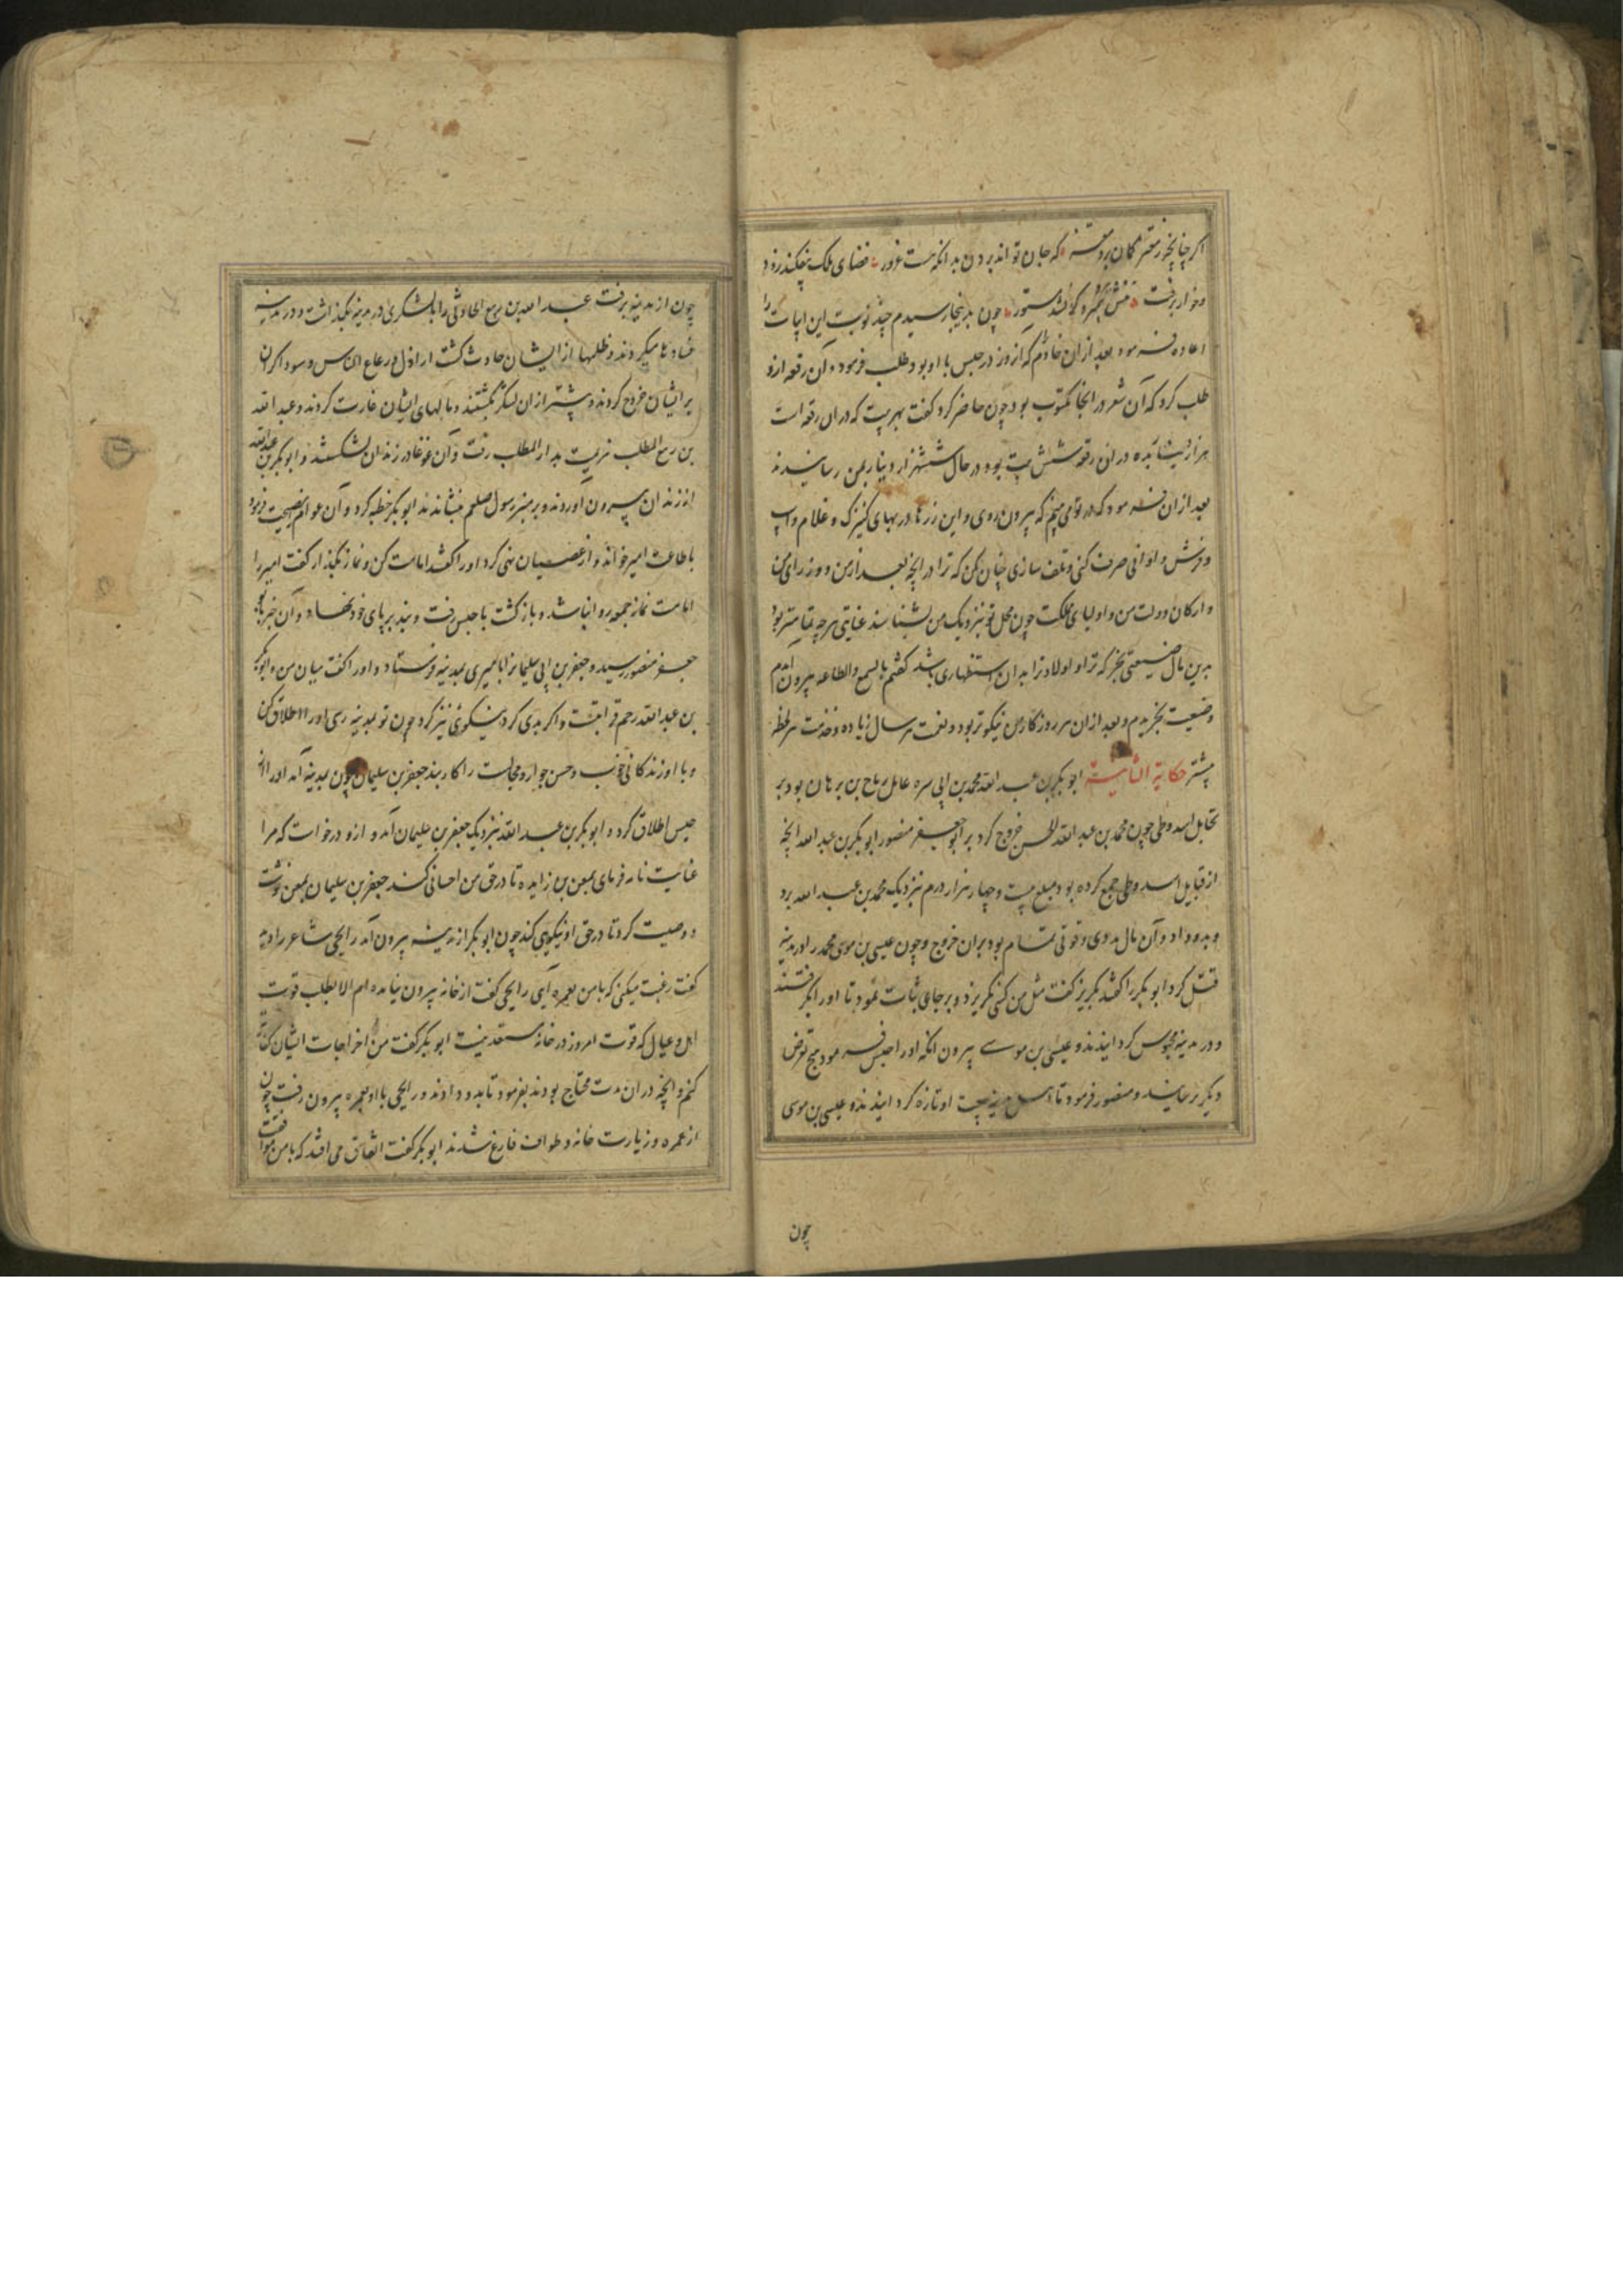 که جان تواند بردن بدانکه هست غرور قضای ملک بیفکند زود
چون بدینجا رسیدم چند نوبت این ابیات را
اعاده فرمود بعد از ان خادم که آن روز در حبس با او بود طلب فرمود و آن رقعه ازو
طلب کرد که آن شعر در انجا مکتوب بود چون حاضر کرد گفت بهر بیت که دران رقعه است
هزار دینار بده دران رقعه شش بیت بود در حال ششهزار دینار بمن رسانیدند
بعد ازان فرمود که در تو می بینم که بیرون روی و این زرها در بهای کنیزک و غلام و اسپ
و فرش و اوانی صرف کنی و تلف سازی چنان مکن که ترا در انچه بعد ازمن و وزرای من
و ارکان دولت من و اولیای مملکت چون محل تو نزدیک من بشناسند عنایتی هرچه تمامتر بود
بدین مال ضیعتی بخر که ترا و اولاد ترا بدان استظهاری باشد گفتم بالسمع والطاعه بیرون آمدم
و ضیعت بخریدم و بعد ازان هر روز کار من نیکوتر بود و نعمت هر سال زیاده و خدمت هر لحظه
بیشتر حکایة الثامنة ابو بکر بن عبد الله محمد بن ابی سره عامل رباح بن برهان بود بر
قبایل اسد و طی چون محمد بن عبد الله الحسن خروج کرد بر ابو جعفر منصور ابو بکر بن عبد الله انچه
از قبایل اسد و طی جمع کرده بود مبلغ بیست و چهار هزار درم نزدیک محمد بن عبد الله برد
و بدو داد و آن مال مددی و قوتی تمام بود بران خروج و چون عیسی بن موسی محمد را در مدینه
قتل کرد ابو بکر را گفتند بگریز گفت مثل من کسی نگریزد و بر جای ثبات نمود تا او را بگرفتند
و در مدینه محبوس گردانیدند و عیسی بن موسی بیرون انکه او را حبس فرمود هیچ تعرض
دیگر نرسانید و منصور فرمود تا اهل مدینه بیعت او تازه گردانیدند و عیسی بن موسی
چون
چون از مدینه برفت عبد الله بن ربیع الحارثی را با لشکری در مدینه بگذاشت و در مدینه
فسادها میکردند و ظلمها از ایشان حادث گشت اراذل و رعاع الناس و سوداکران
بر ایشان خروج کردند و بیشتر ازان لشکر بکشتند و مالهای ایشان غارت کردند و عبد الله
بن ربیع المطلب بدار المطلب رفت و آن غوغا در زندان بشکستند و ابو بکر بن عبد الله
از زندان بیرون آوردند و بر منبر رسول صلعم بنشاندند ابو بکر خطبه کرد و آن عوام نصیحت فرمود
با طاعت امیر خواند و از عصیان نهی کرد او را گفتند امامت کن و نماز بگذار گفت اسیر را
امامت نماز جمعه روا نباشد و بازگشت با حبس رفت و بند بر پای خود نهاد و آن خبر بابو
جعفر منصور رسید و جعفر بن ابی سلیمانرا بامیری بمدینه فرستاد و او را گفت میان من و ابو بکر
بن عبد الله رحم قرابتست و اگر بدی کرد نیکوئی نیز کرد چون تو بمدینه رسی او را اطلاق کن
و با او زندگانی خوب و حسن جوار و مجالست را کار بند جعفر بن سلیمان چون بمدینه آمد او را از
حبس اطلاق کرد و ابو بکر بن عبد الله نزدیک جعفر بن سلیمان آمد و ازو درخواست که مرا
عنایت نامه فرمای بمعن بن زایده تا در حق من احسانی کند جعفر بن سلیمان بمعن نوشت
و وصیت کرد تا در حق او نیکویی کند چون ابو بکر از مدینه بیرون آمد رابحی شاعر را دید
گفت رغبت میکنی که با من بعمره آیی رابحی گفت از خانه بیرون نیامده ام الا بطلب قوت
اهل و عیال که قوت امروز در خانه مستعد نیست ابو بکر گفت من اخراجات ایشان کفایت
کنم و انچه دران مدت محتاج بودند بفرمود تا بدو دادند و رابحی با او بعمره بیرون رفت چون
از عمره و زیارت خانه و طواف فارغ شدند ابو بکر گفت اتفاق می افتد که با من موافقت